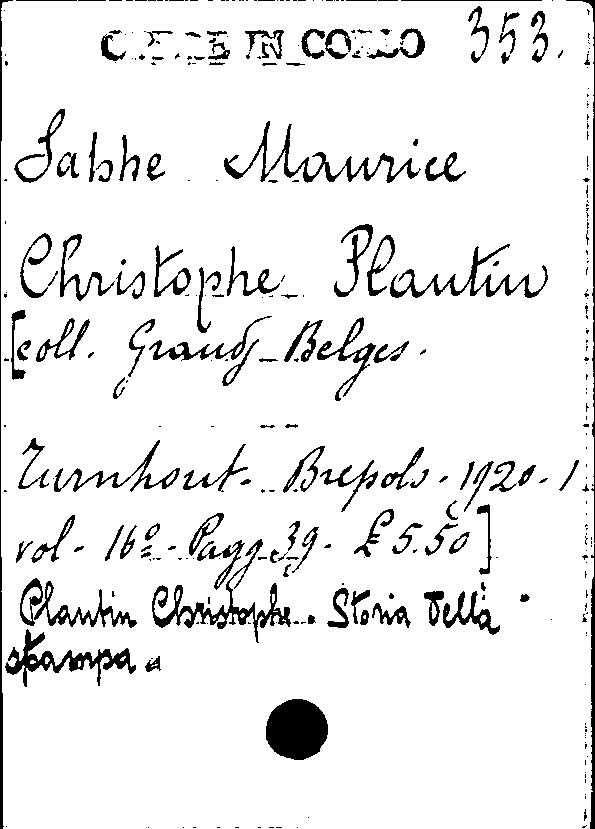 353.
Sabbe Maurice
Christophe Plantin
[coll. Grands Belges.
Turnhout. Brepols. 1920. 1
vol. 16º. Pagg. 39. £ 5.50]
Plantin Christophe. Storia della
stampa.